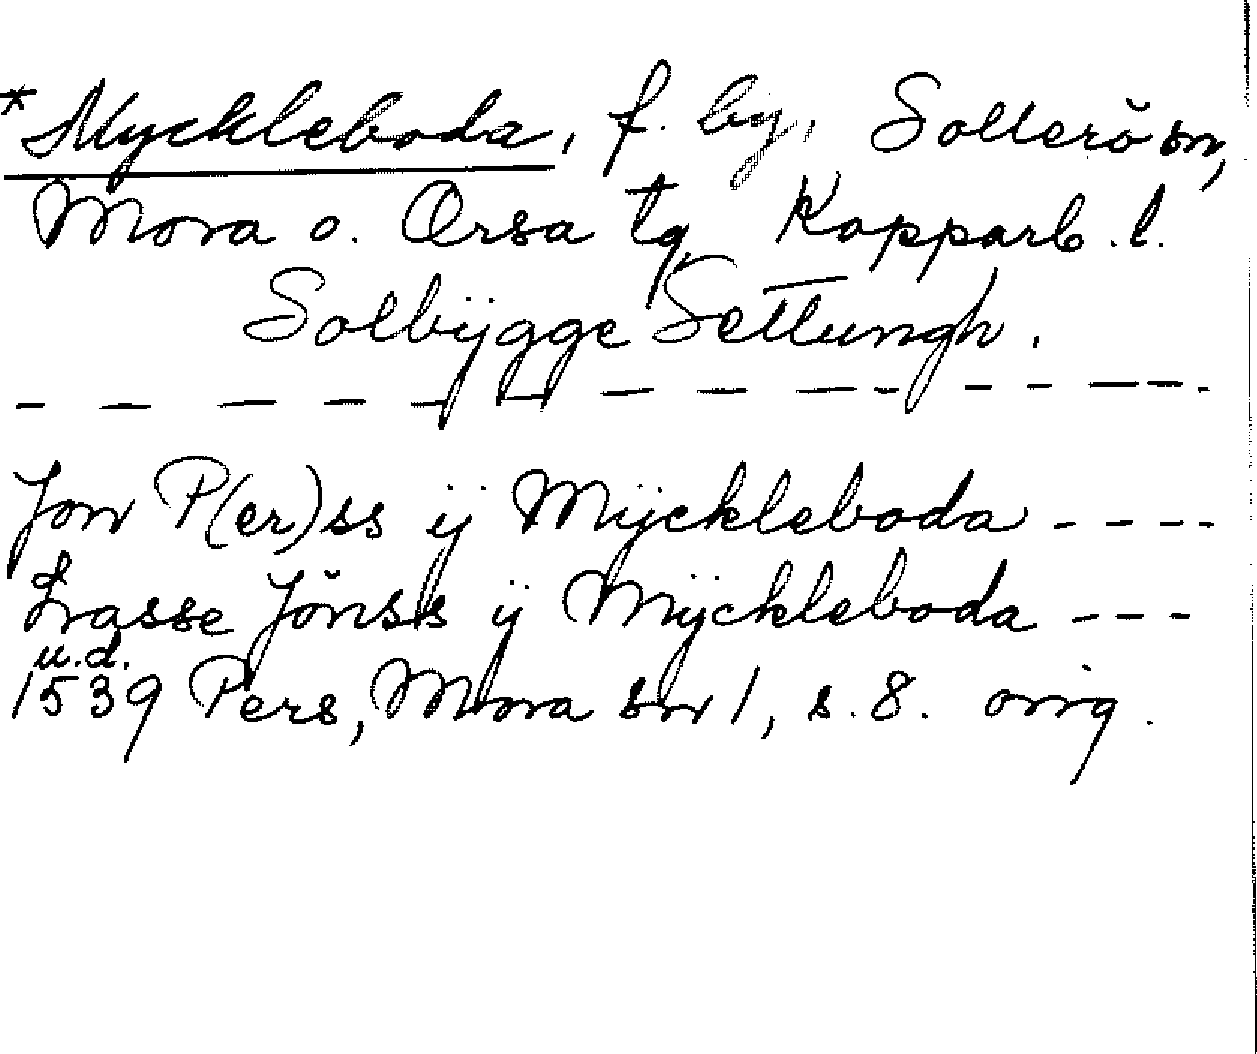 *Myckleboda, f. by, Sollerö sn,
Mora o. Orsa tg, Kopparb. l.
Solbÿgge Settungh.
– – – – – – – – – – – – – –
Jon P(er)ss ÿ Mÿckleboda - - - -
Lasse Jönss ÿ Mÿckleboda - - -
u.d.
1539 Pers, Mora sn 1, s. 8. orig.